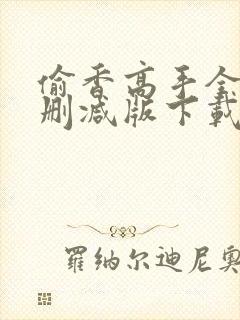 偷香高手全
删减版下载
羅纳尔迪尼奥